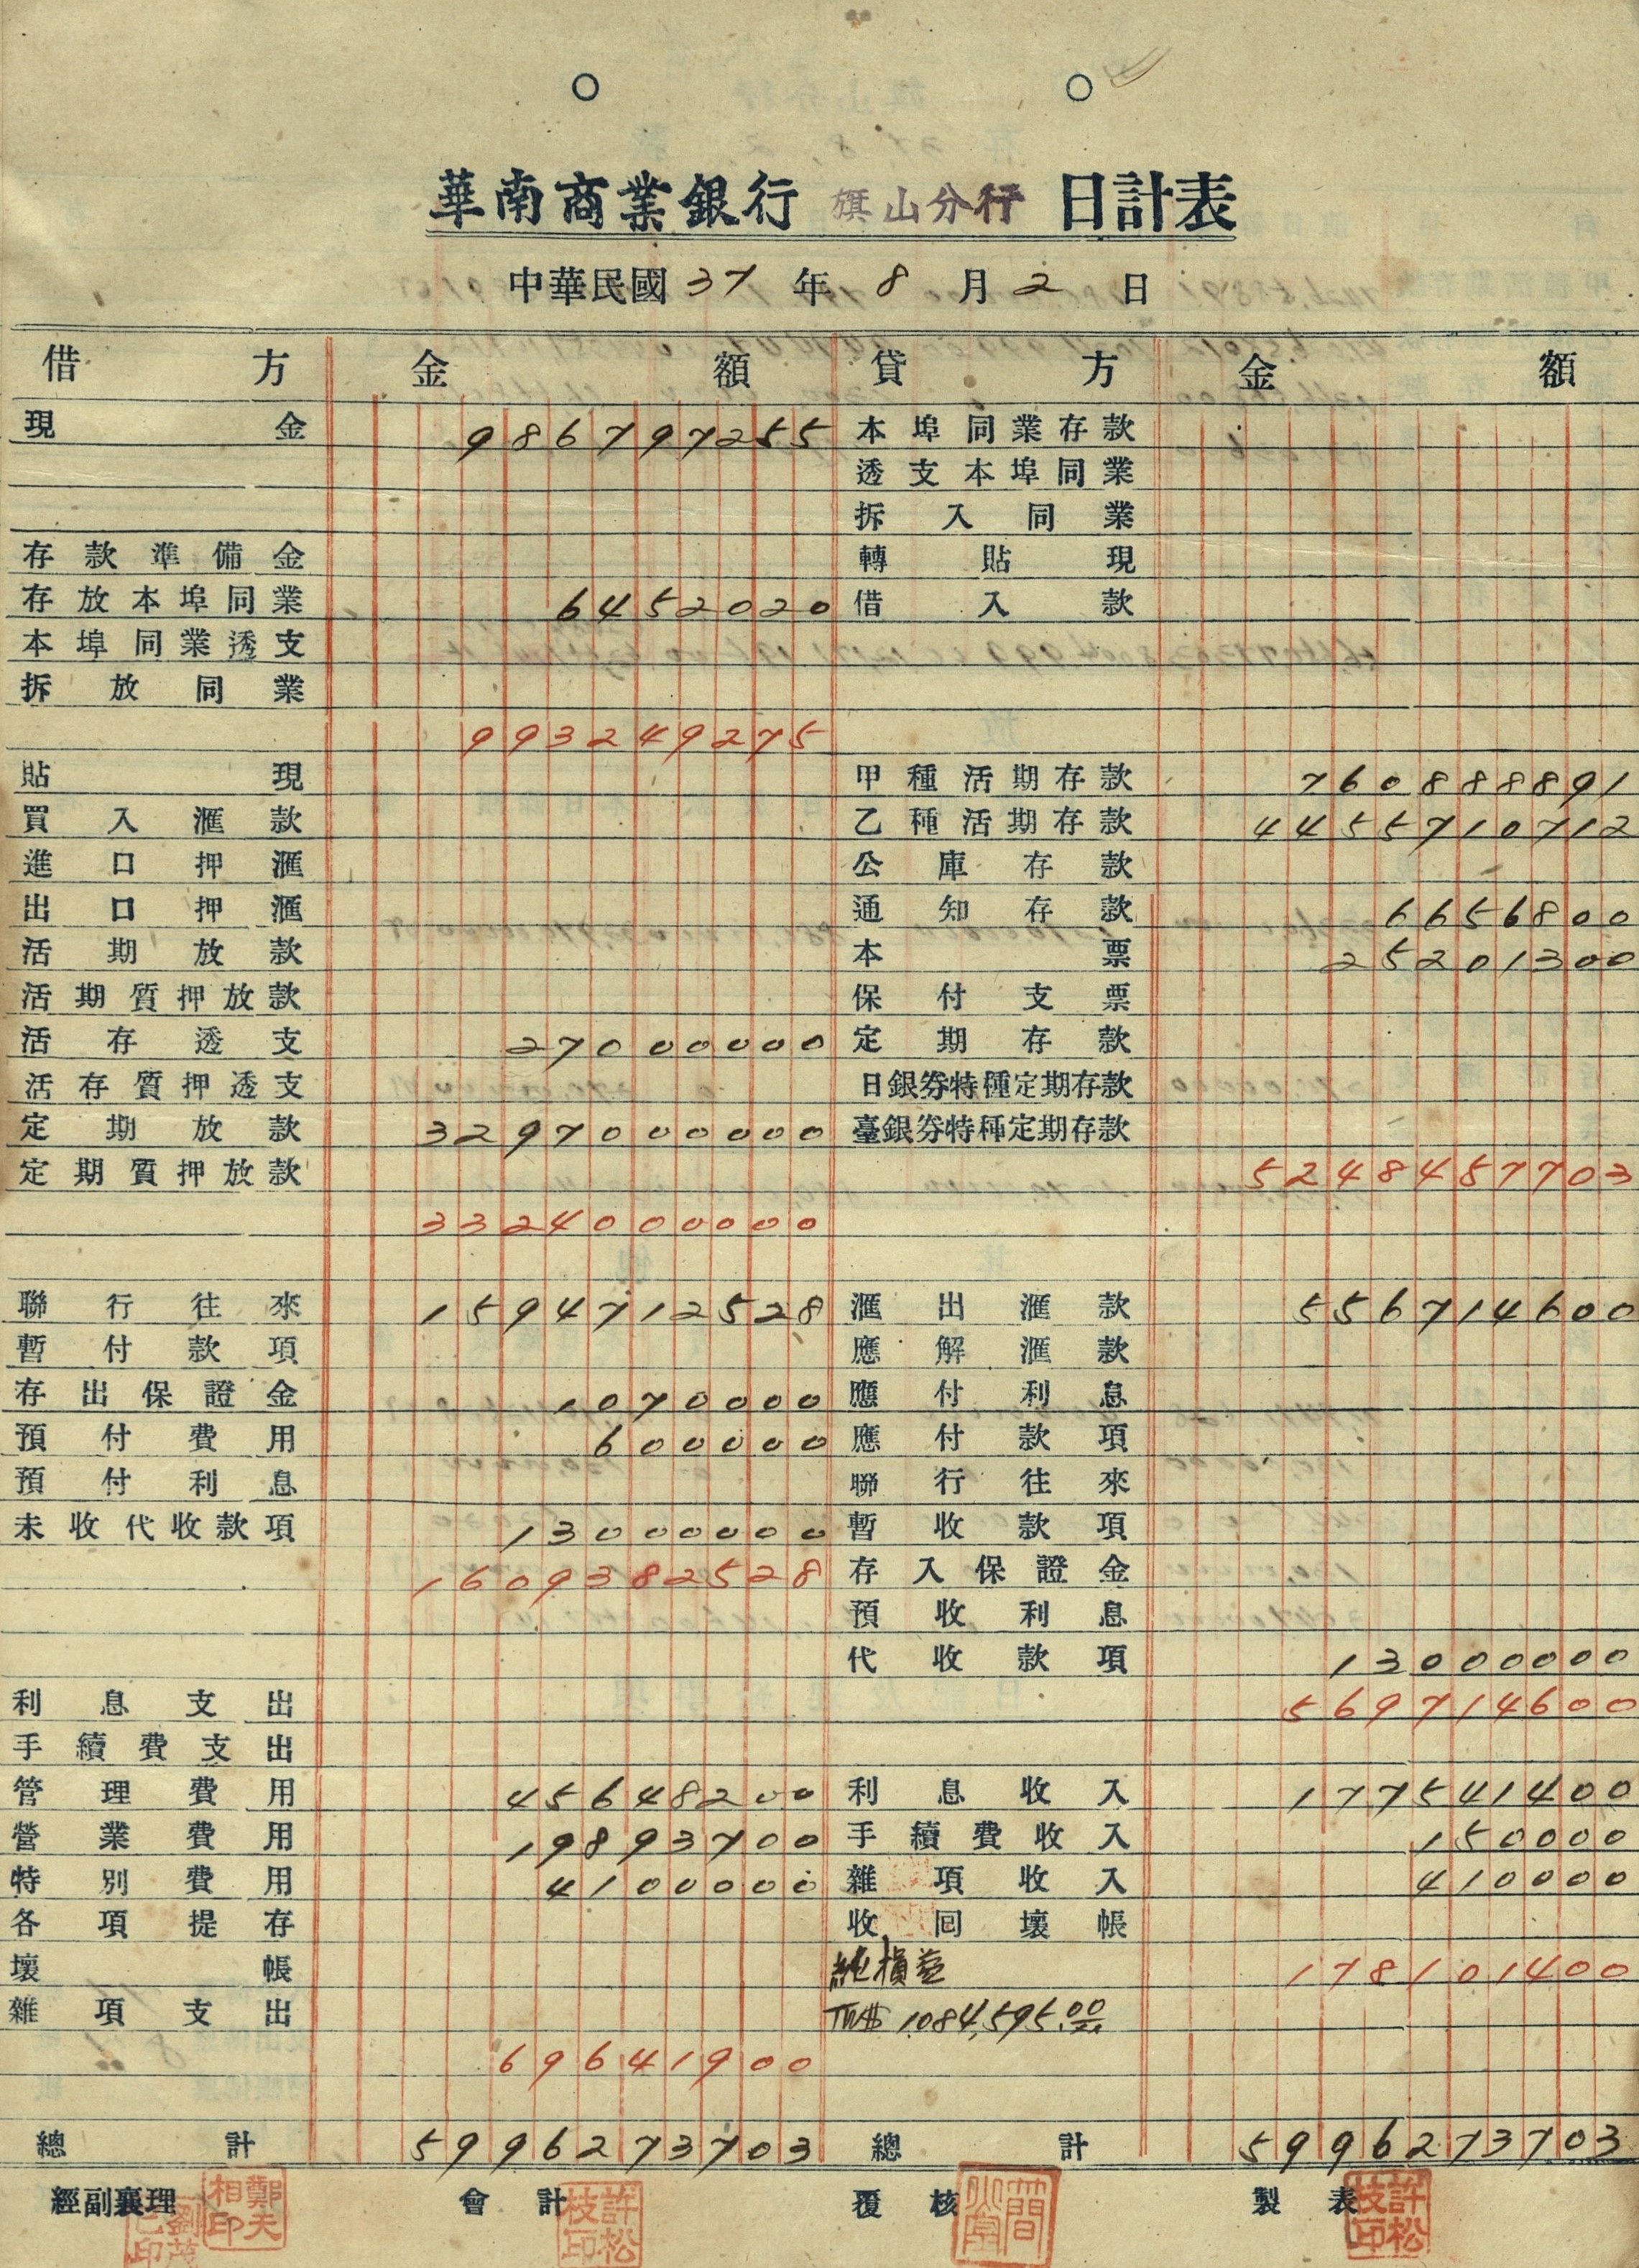 華南商業銀行 旗山分行 日計表
中華民國 37 年 8 月 2 日
借方 金額 貸方 金額
現金 986797255 本埠同業存款
透支本埠同業
拆入同業
存款準備金 轉貼現
存放本埠同業 6452020 借入款
本埠同業透支
拆放同業
993249275
貼現 甲種活期存款 760888891
買入滙款 乙種活期存款 4455710712
進口押滙 公庫存款
出口押滙 通知存款 6656800
活期放款 本票 25201300
活期質押放款 保付支票
活存透支 27000000 定期存款
活存質押透支 日銀券特種定期存款
定期放款 3297000000 臺銀券特種定期存款
定期質押放款 5248457703
3324000000
聯行往來 1594712528 滙出滙款 556714600
暫付款項 應解滙款
存出保證金 1070000 應付利息
預付費用 600000 應付款項
預付利息 聯行往來
未收代收款項 13000000 暫收款項
1609382528 存入保證金
預收利息
代收款項 13000000
利息支出 569714600
手續費支出
管理費用 45648200 利息收入 177541400
營業費用 19893700 手續費收入 150000
特別費用 4100000 雜項收入 410000
各項提存 收回壞帳
壞帳 純損益 178101400
雜項支出 TW$ 1,084,595.00
69641900
總計 5996273703 總計 5996273703
經副襄理 會計 覆核 製表
鄭天相印
許松枝印
許松枝印